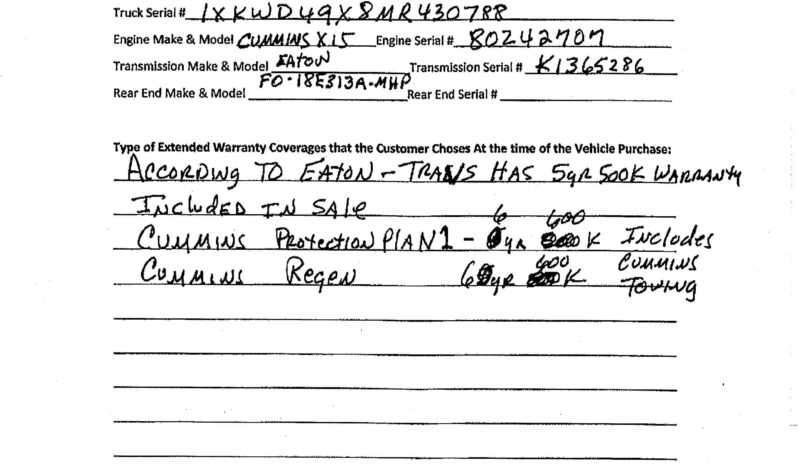 Truck Serial # 1XKWD49X8MR430788
Engine Make & Model CUMMINS X15 Engine Serial # 80242707
Transmission Make & Model EATON Transmission Serial # K1365286
FO-18E313A-MHP
Rear End Make & Model Rear End Serial #
Type of Extended Warranty Coverages that the Customer Choses At the time of the Vehicle Purchase:
ACCORDING TO EATON - TRANS HAS 5yr 500K WARRANTY
INCLUDED IN SALE
CUMMINS Protection PLAN 1 - 6 yr 600 K Includes
CUMMINS Regen 6 yr 600 K CUMMINS
TOWING